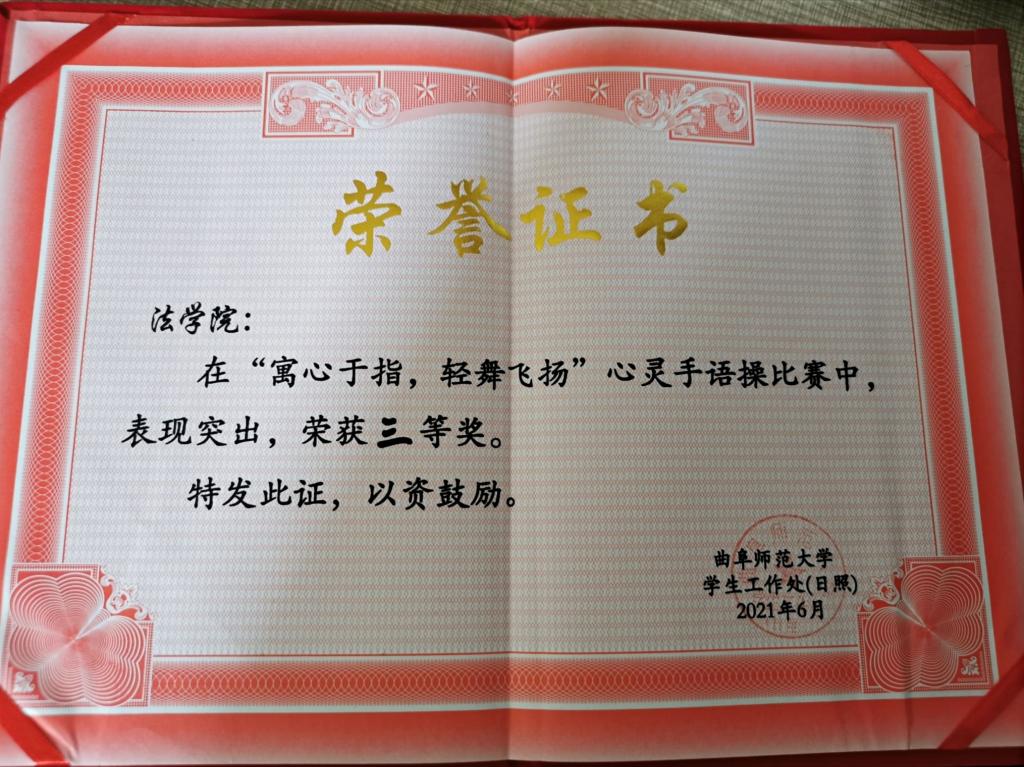 荣誉证书
法学院：
在“寓心于指，轻舞飞扬”心灵手语操比赛中，
表现突出，荣获三等奖。
特发此证，以资鼓励。
曲阜师范大学
学生工作处(日照)
2021年6月